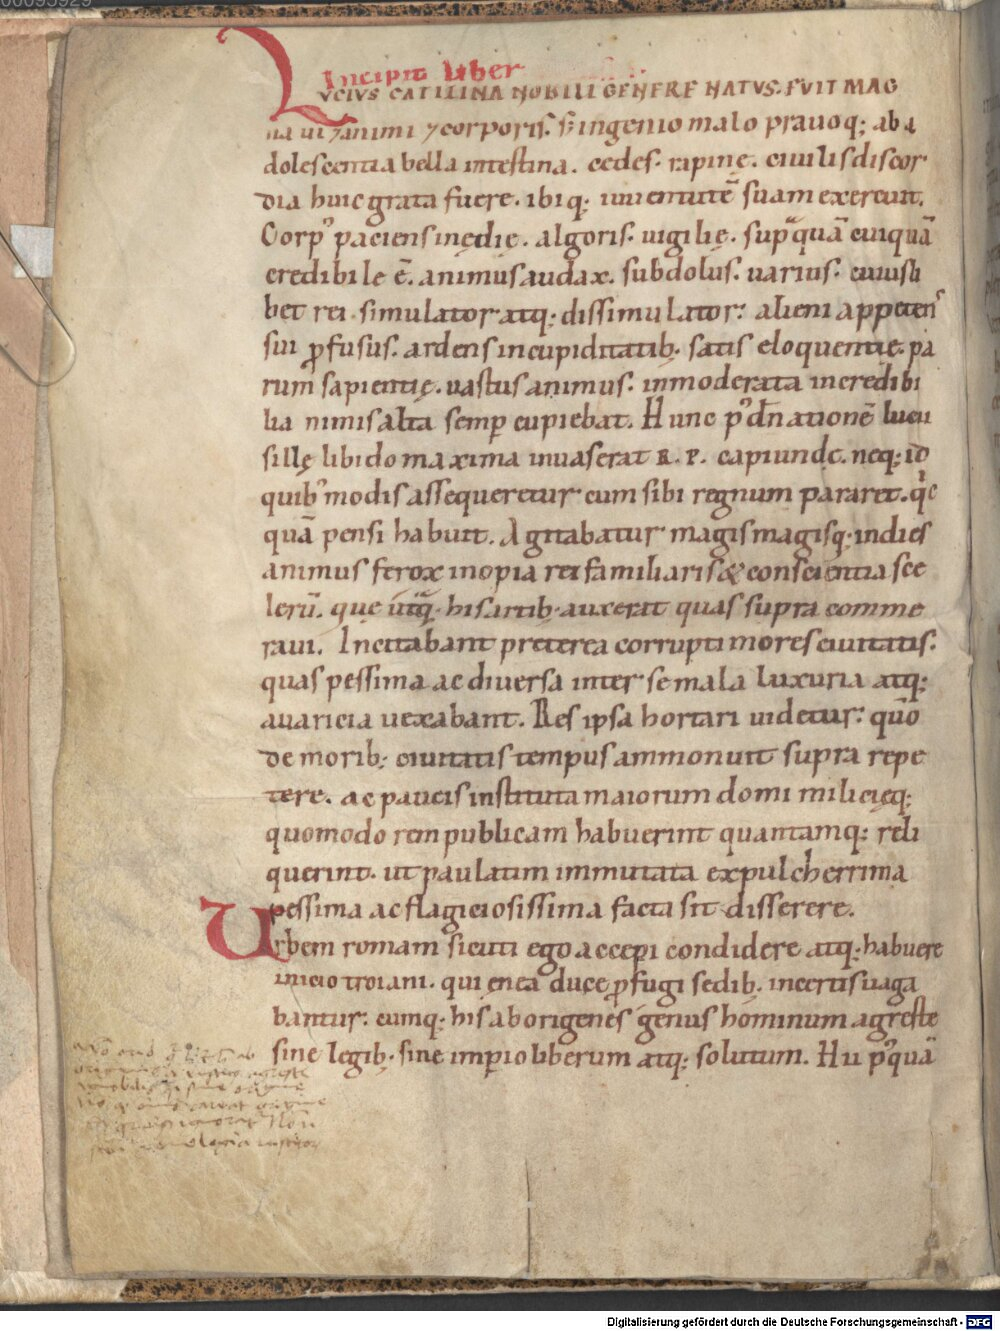 00095929
Incipit liber
LVCIVS CATILINA NOBILI GENERE NATVS. FVIT MAG
na ui ⁊ animi ⁊ corporis. s; ingenio malo prauoq; ab a
dolescentia bella intestina. cedes. rapinę. ciuilis discor
dia huic grata fuere. ibiq; iuuentutē suam exercuit.
Corpꝰ paciens inędię. algoris. uigilię. supra quā cuiquā
credibile ē. animus audax. subdolus. uarius. cuiusli
bet rei. simulator atq; dissimulator. alieni appetens
sui ꝓfusus. ardens in cupiditatib; satis eloquentię. pa
rum sapientię. uastus animus. inmoderata incredibi
lia nimis alta semꝑ cupiebat. Hunc pꝰ dn̄ationē lucii
sillę libido maxima inuaserat R. P. capiundę. neq; id
quibꝰ modis assequeretur cum sibi regnum pararet. qⁱc
quā pensi habuit. Agitabatur magis magisq; in dies
animus ferox inopia rei familiaris & conscientia sce
lerū. que utraq; his artib; auxerat quas supra comme
raui. Incitabant preterea corrupti mores ciuitatis.
quas pessima ac diuersa inter se mala luxuria atq;
auaricia uexabant. Res ipsa hortari uidetur. quō
de morib; ciuitatis tempus ammonuit supra repe
tere. ac paucis instituta maiorum domi milicięq;
quomodo rem publicam habuerint quantamq; reli
querint. ut paulatim immutata ex pulcherrima
pessima ac flagiciosissima facta sit disserere.
Urbem romam sicuti ego accepi condidere atq; habuere
inicio troiani. qui enea duce ꝓfugi sedib; incertis uaga
bantur. cumq; his aborigenes genus hominum agreste
sine legib; sine imꝑio liberum atq; solutum. Hii pꝰquā
Digitalisierung gefördert durch die Deutsche Forschungsgemeinschaft - DFG